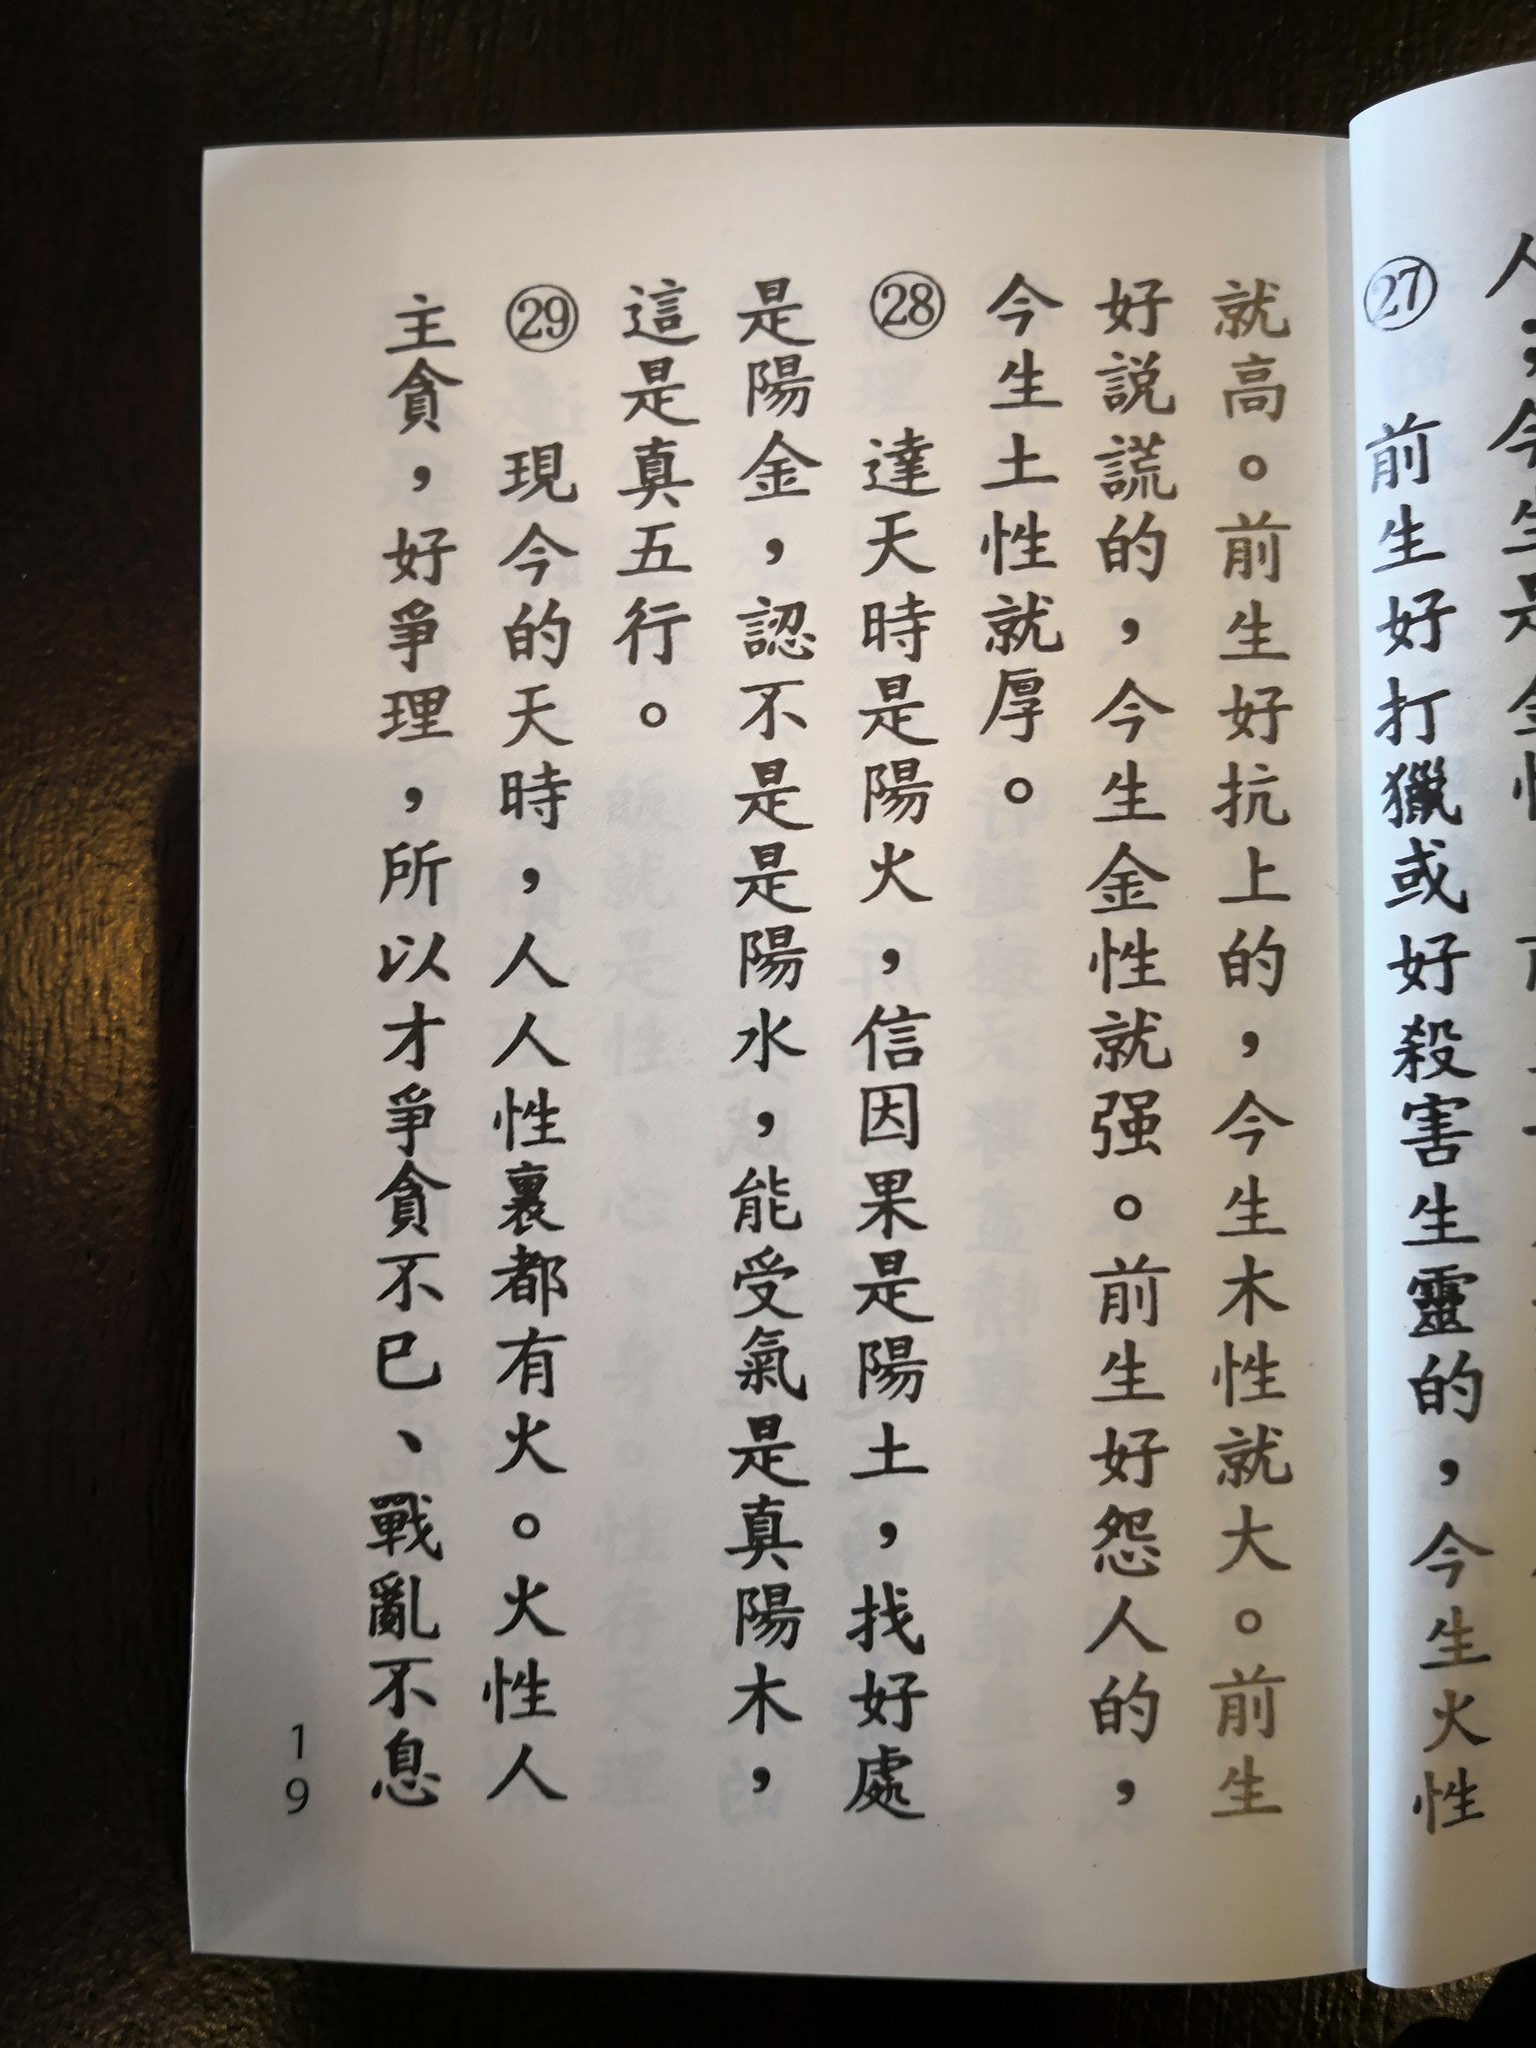 ㉗ 前生好打獵或好殺害生靈的，今生火性
就高。前生好抗上的，今生木性就大。前生
好説謊的，今生金性就强。前生好怨人的，
今生土性就厚。
㉘ 達天時是陽火，信因果是陽土，找好處
是陽金，認不是是陽水，能受氣是真陽木，
這是真五行。
㉙ 現今的天時，人人性裏都有火。火性人
主貪，好爭理，所以才爭貪不已、戰亂不息
19